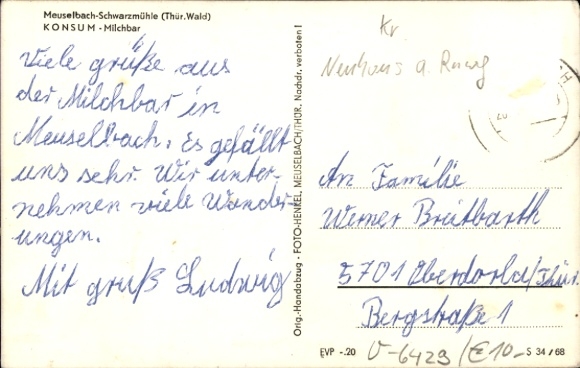 Meuselbach-Schwarzmühle (Thür. Wald)
KONSUM - Milchbar
Viele grüße aus
der Milchbar in
Meuselbach. Es gefällt
uns sehr. Wir unter-
nehmen viele Wander-
ungen.
Mit gruß Ludwig
Orig.-Handabzug - FOTO-HENKEL, MEUSELBACH/THÜR. Nachdr. verboten!
Kr
Neuhaus a. Rennwg
An Familie
Werner Breitbarth
5701 Oberdorla/Thür.
Bergstraße 1
EVP -.20 V-6429/€10- S 34/68